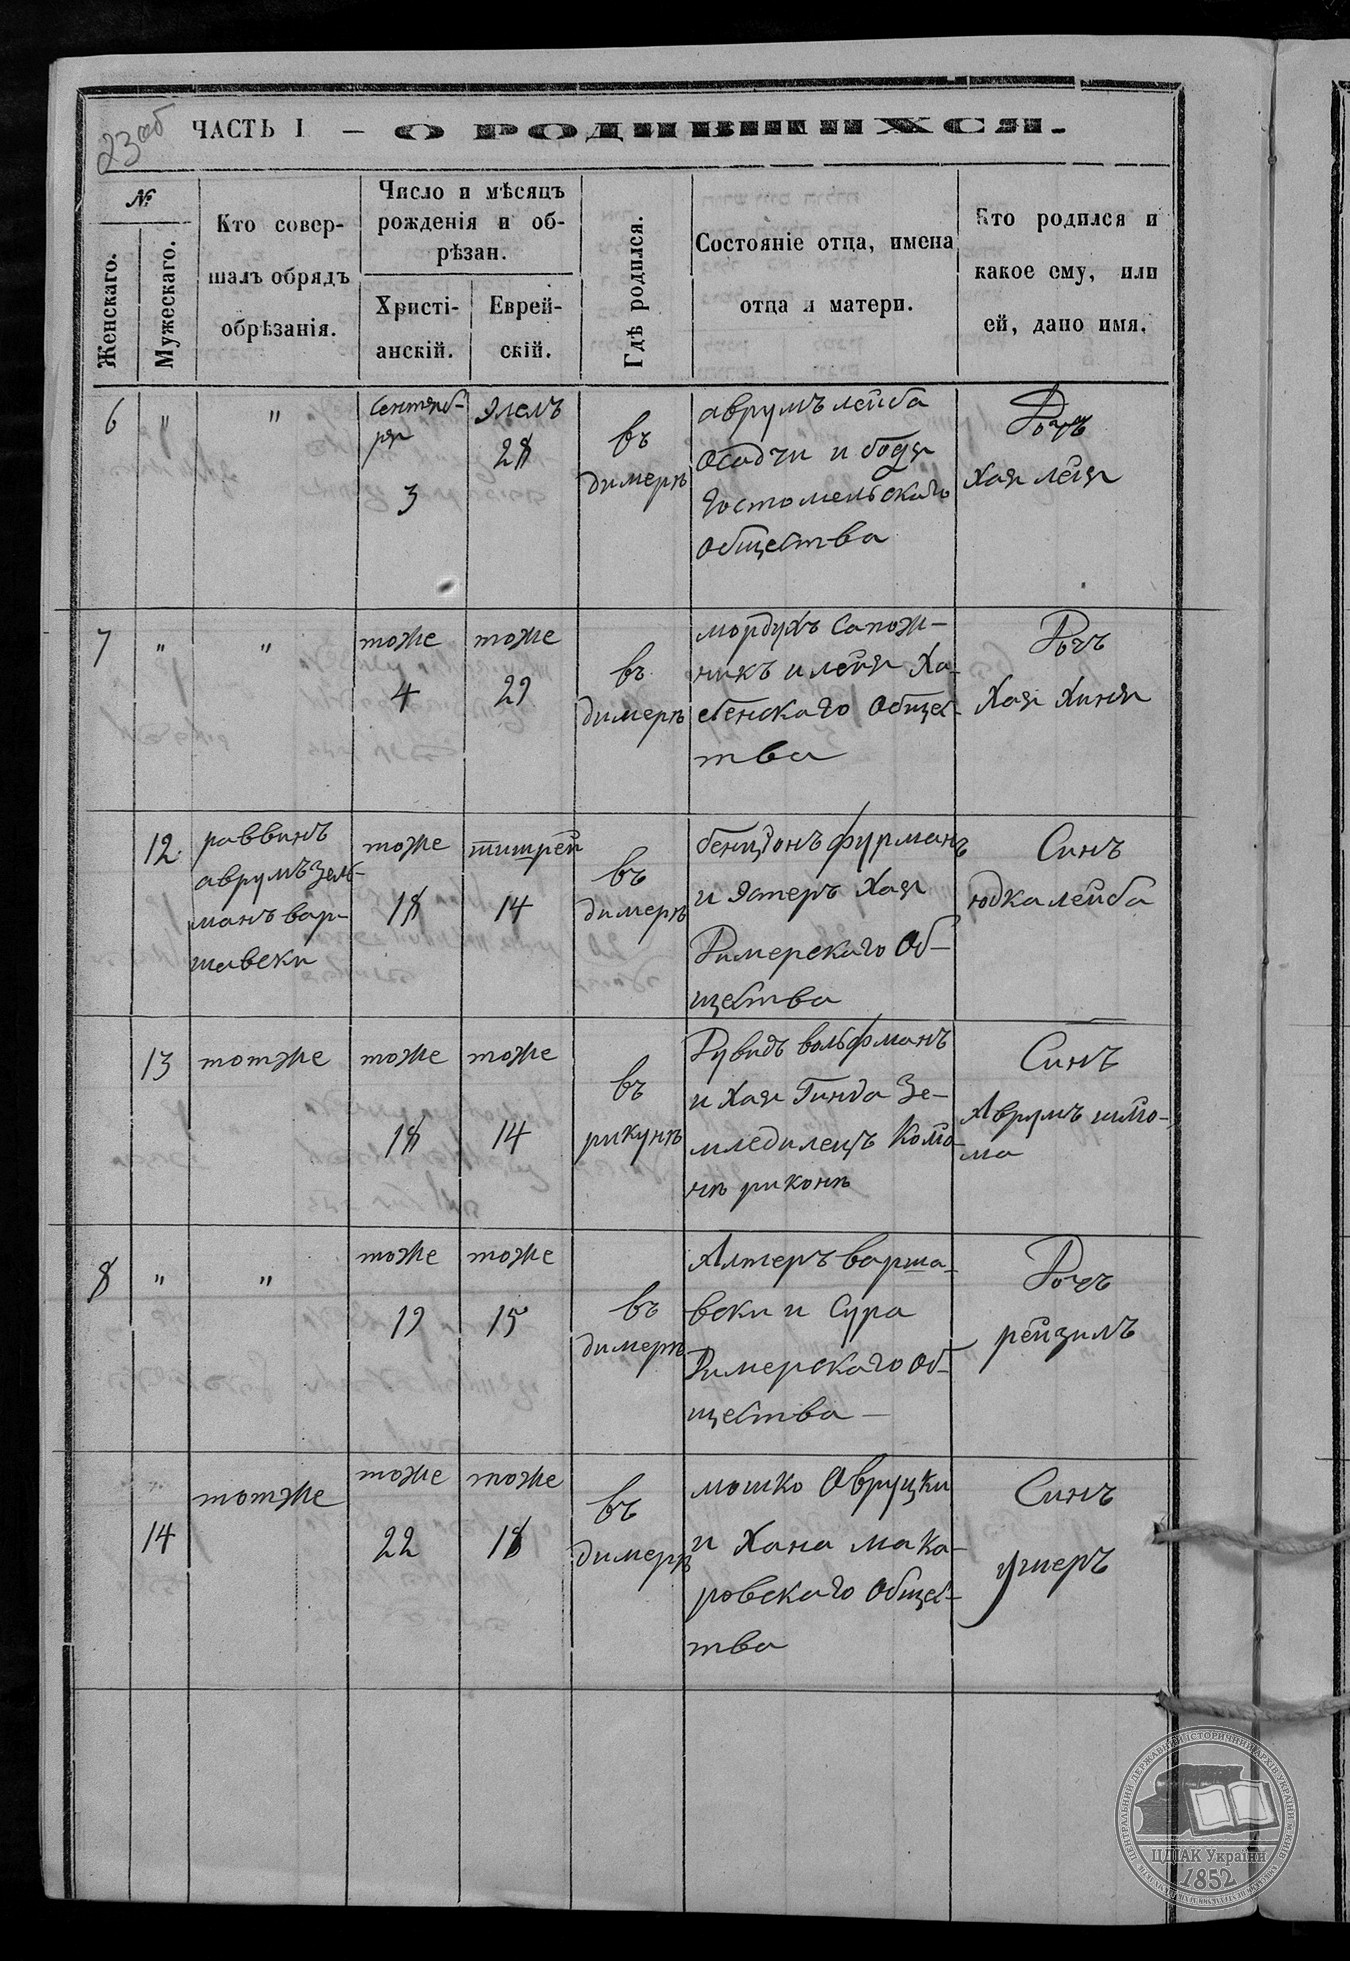 23 об
ЧАСТЬ I — О РОДИВШИХСЯ.
№
Женскаго.
Мужескаго.
Кто совер-
шалъ обрядъ
обрѣзанія.
Число и мѣсяцъ
рожденія и об-
рѣзан.
Христі-
анскій.
Еврей-
скій.
Гдѣ родился.
Состояніе отца, имена
отца и матери.
Кто родился и
какое ему, или
ей, дано имя.
6 " "
Сентяб-
ря
3
Элелъ
28
въ
димерѣ
аврумъ лейба
Осадчи и бодя
Гостомельскаго
Общества
Дочъ
Хая лея
7 " "
тоже
4
тоже
29
въ
димерѣ
мордухъ Сапож-
никъ и лейя Ха-
бенскаго Общес-
тва
Дочъ
Хая Хиня
12
раввинъ
аврумъ Зель-
манъ вар-
шавски
тоже
18
тишрей
14
въ
димерѣ
бенціонъ фурманъ
и Эстеръ Хая
Димерскаго Об-
щества
Синъ
юдка лейба
13
тотже
тоже
18
тоже
14
въ
рикунѣ
Дувидъ вольфманъ
и Хая Гинда Зе-
мледилецъ Коло-
нѣ риконѣ
Синъ
Аврумъ шло-
ма
8 " "
тоже
19
тоже
15
въ
димерѣ
Алтеръ варша-
вски и Сура
Димерскаго Об-
щества —
Дочъ
рейзилъ
14
"
тотже
тоже
22
тоже
18
въ
димерѣ
мошко Овруцки
и Хана мака-
ровскаго Общес-
тва
Синъ
Ушеръ
ЦЕНТРАЛЬНИЙ ДЕРЖАВНИЙ ІСТОРИЧНИЙ АРХІВ УКРАЇНИ М. КИЇВ
ЦДІАК України
1852